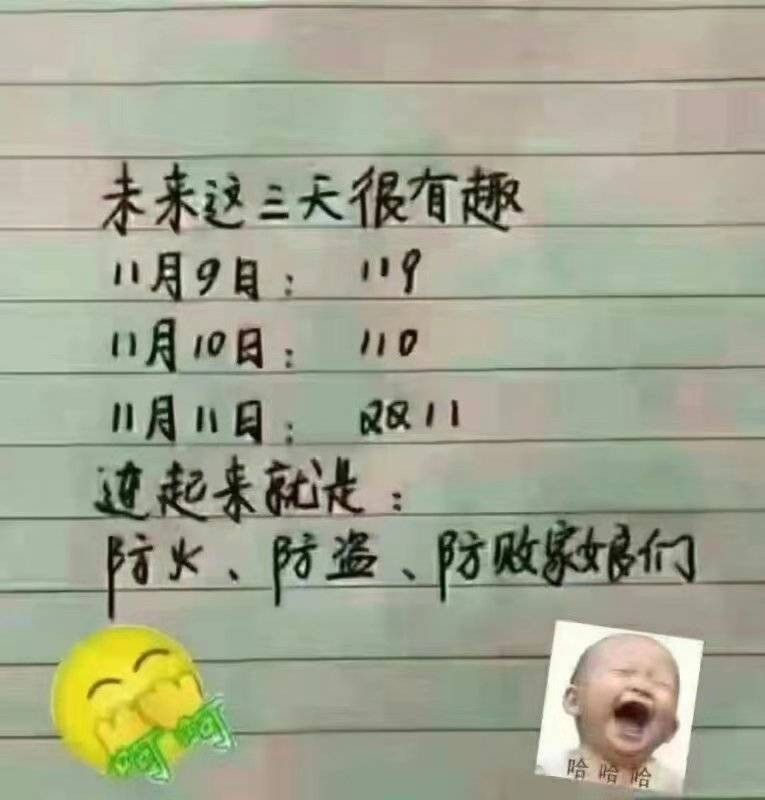 未来这三天很有趣
11月9日： 119
11月10日： 110
11月11日： 双11
连起来就是：
防火、防盗、防败家娘们
呵呵
哈哈哈